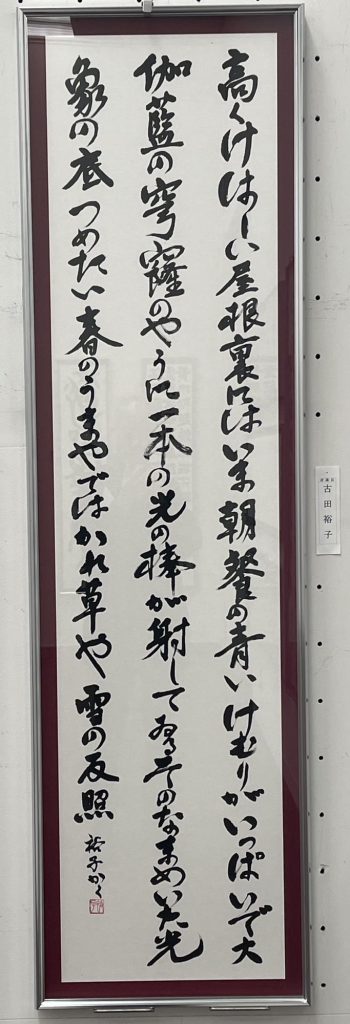 高くけはしい屋根裏にはいま朝餐の青いけむりがいっぱいで大
伽藍の穹窿のやうに一本の光の棒が射してゐるそのなまめいた光
象の底つめたい春のうまやではかれ草や雪の反照
裕子かく
古田裕子